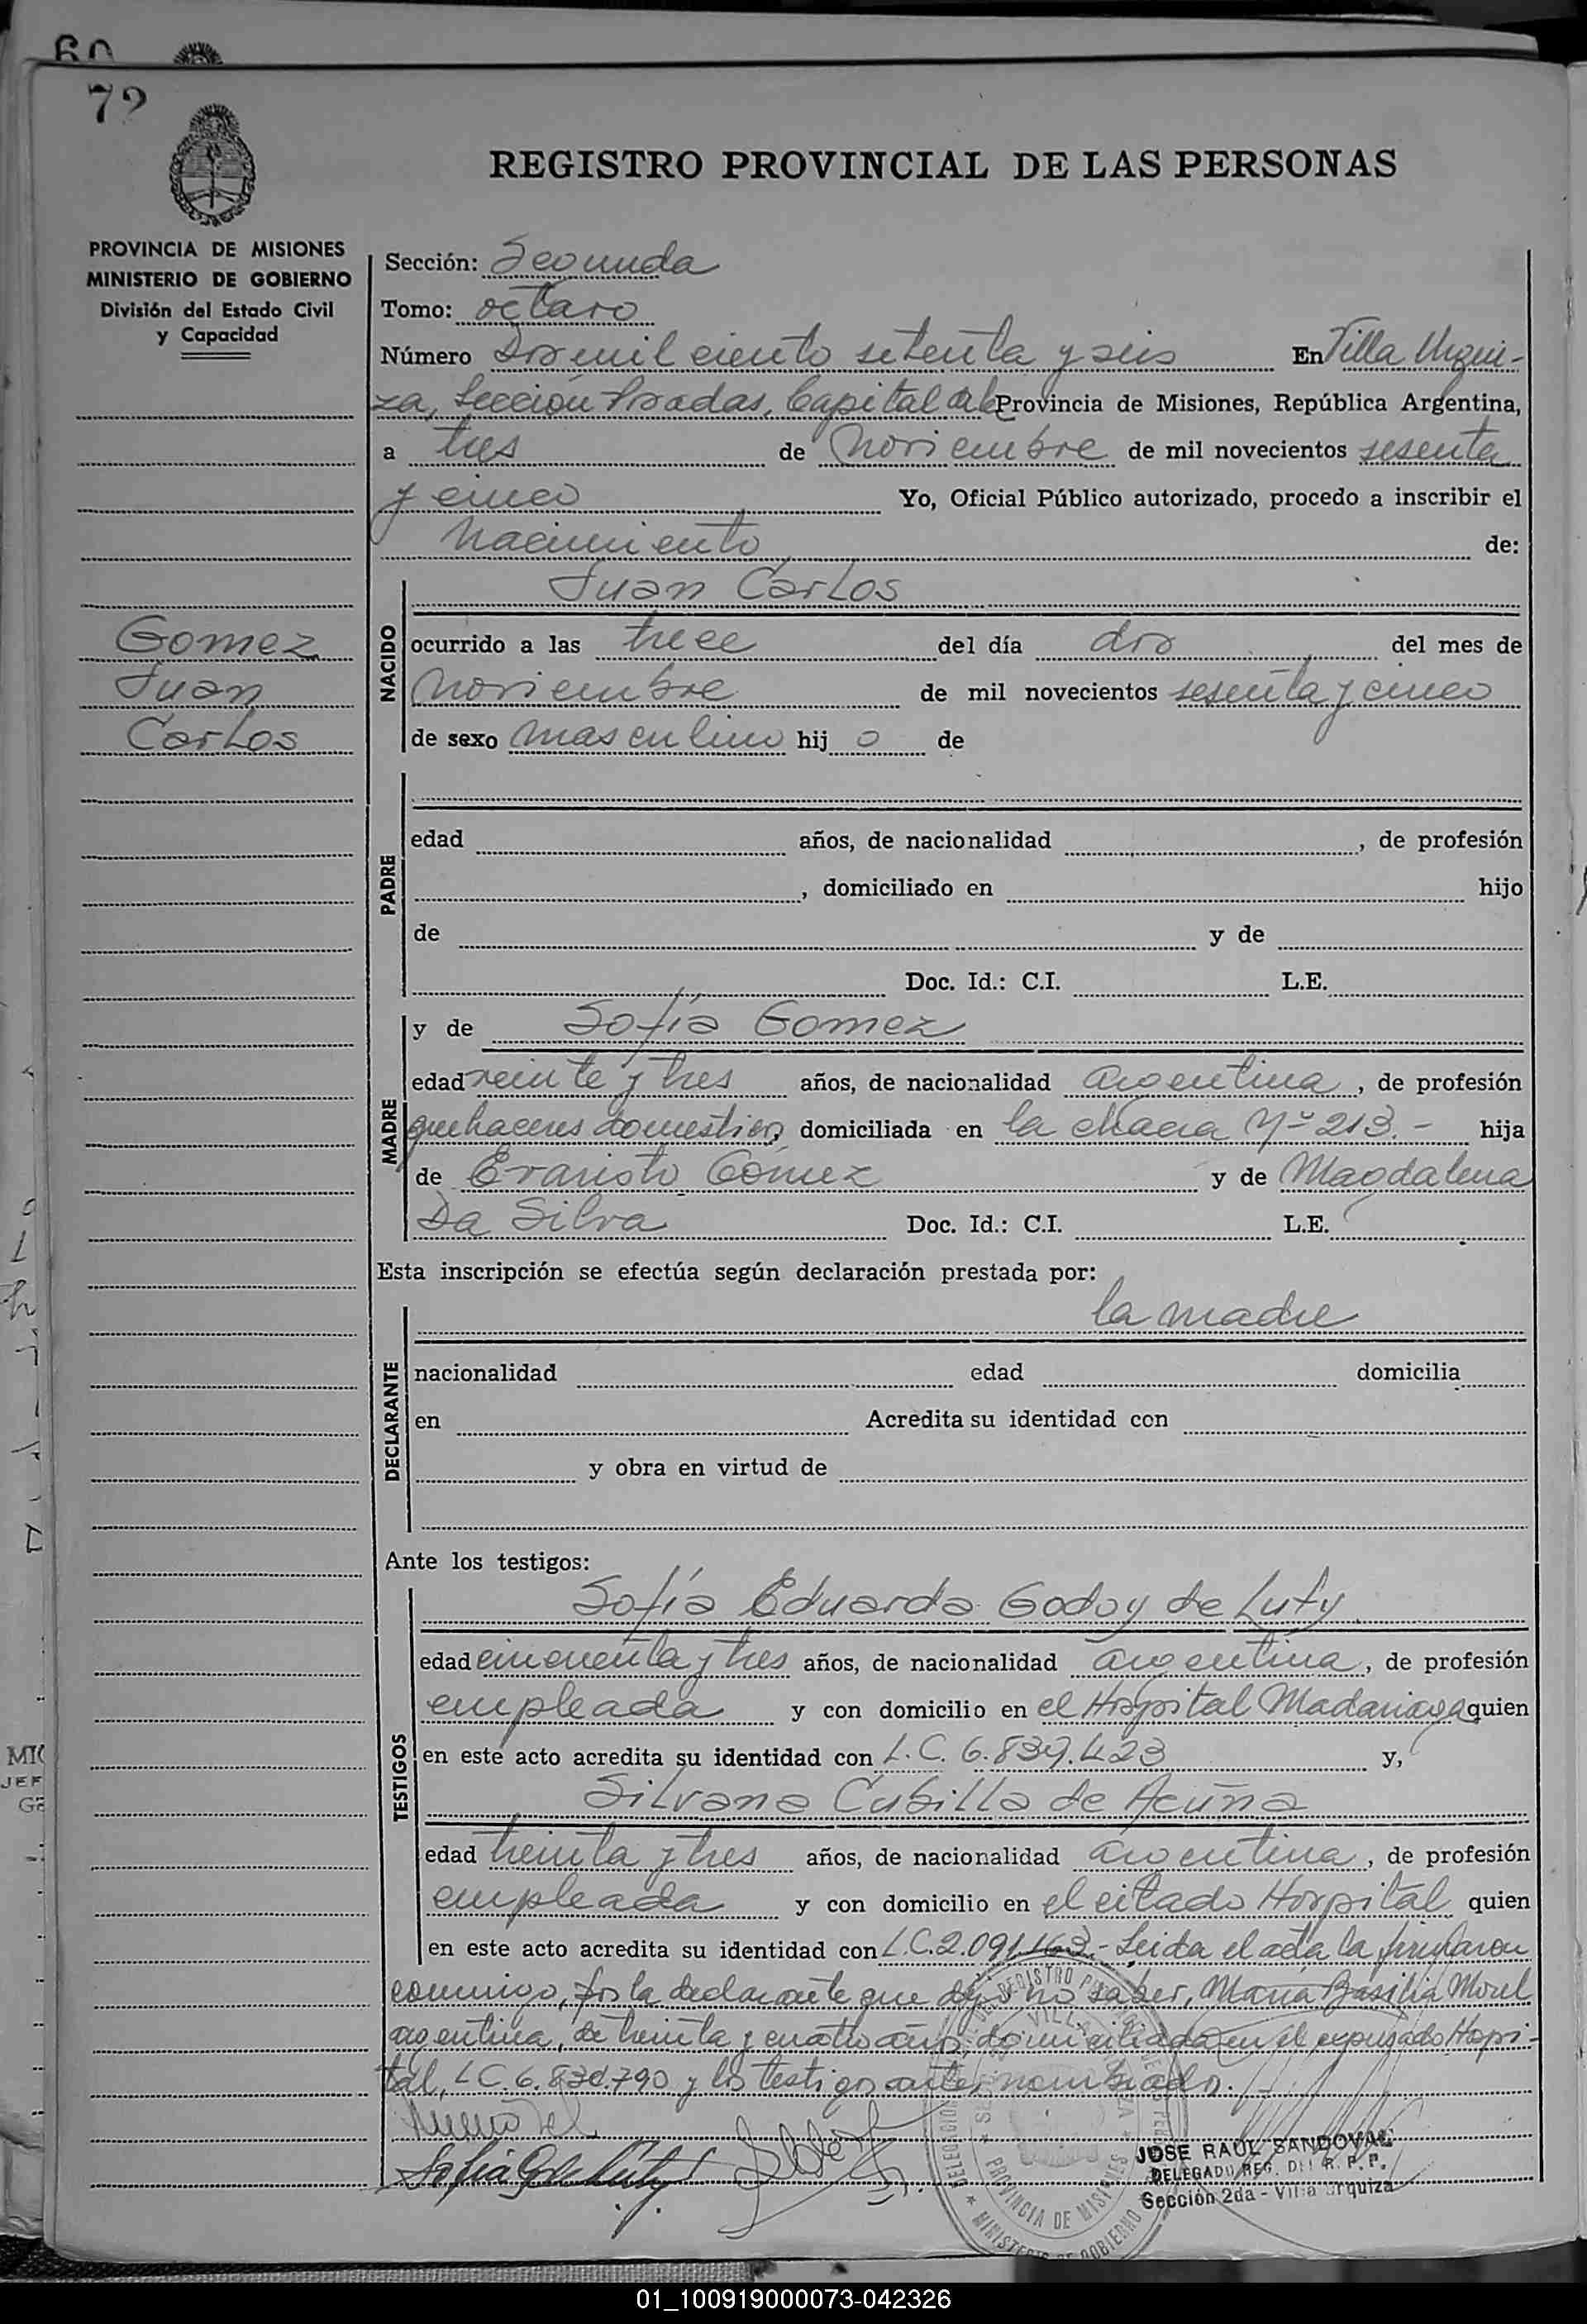 72
REGISTRO PROVINCIAL DE LAS PERSONAS
PROVINCIA DE MISIONES
MINISTERIO DE GOBIERNO
División del Estado Civil
y Capacidad
Sección: Segunda
Tomo: octavo
Número Dos mil ciento setenta y seis En Villa Urqui-
za, Sección Posadas, Capital de la Provincia de Misiones, República Argentina,
a tres de Noviembre de mil novecientos sesenta
y cinco Yo, Oficial Público autorizado, procedo a inscribir el
Nacimiento de:
Juan Carlos
Gomez
Juan
Carlos
NACIDO
ocurrido a las trece del día dos del mes de
Noviembre de mil novecientos sesenta y cinco
de sexo masculino hij o de
PADRE
edad años, de nacionalidad , de profesión
, domiciliado en hijo
de y de
Doc. Id.: C.I. L.E.
MADRE
y de Sofía Gomez
edad veinte y tres años, de nacionalidad argentina, de profesión
quehaceres domesticos domiciliada en la chacra Nº 213.- hija
de Evaristo Gómez y de Magdalena
Da Silva Doc. Id.: C.I. L.E.
Esta inscripción se efectúa según declaración prestada por:
la madre
DECLARANTE
nacionalidad edad domicilia
en Acredita su identidad con
y obra en virtud de
Ante los testigos:
TESTIGOS
Sofía Eduarda Godoy de Luty
edad cincuenta y tres años, de nacionalidad argentina, de profesión
empleada y con domicilio en el Hospital Madariaga quien
en este acto acredita su identidad con L.C. 6.839.423 y,
Silvana Cubilla de Acuña
edad treinta y tres años, de nacionalidad argentina, de profesión
empleada y con domicilio en el citado Hospital quien
en este acto acredita su identidad con L.C. 2.091.163.- Leida el acta la firmaron
conmigo, por la declarante que dijo no saber, María Basilia Morel
argentina, de treinta y cuatro años, domiciliada en el expresado Hospi-
tal, L C. 6. y los testigos antes nombrados.
JOSE RAUL SANDOVAL
DELEGADO REG. DEL R. P. P.
Sección 2da - Villa Urquiza
PROVINCIA DE MISIONES
MINISTERIO DE GOBIERNO
01_100919000073-042326